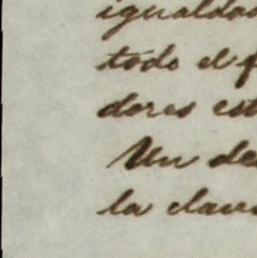 igualdad
todo el f
dores est
Un de
la clave